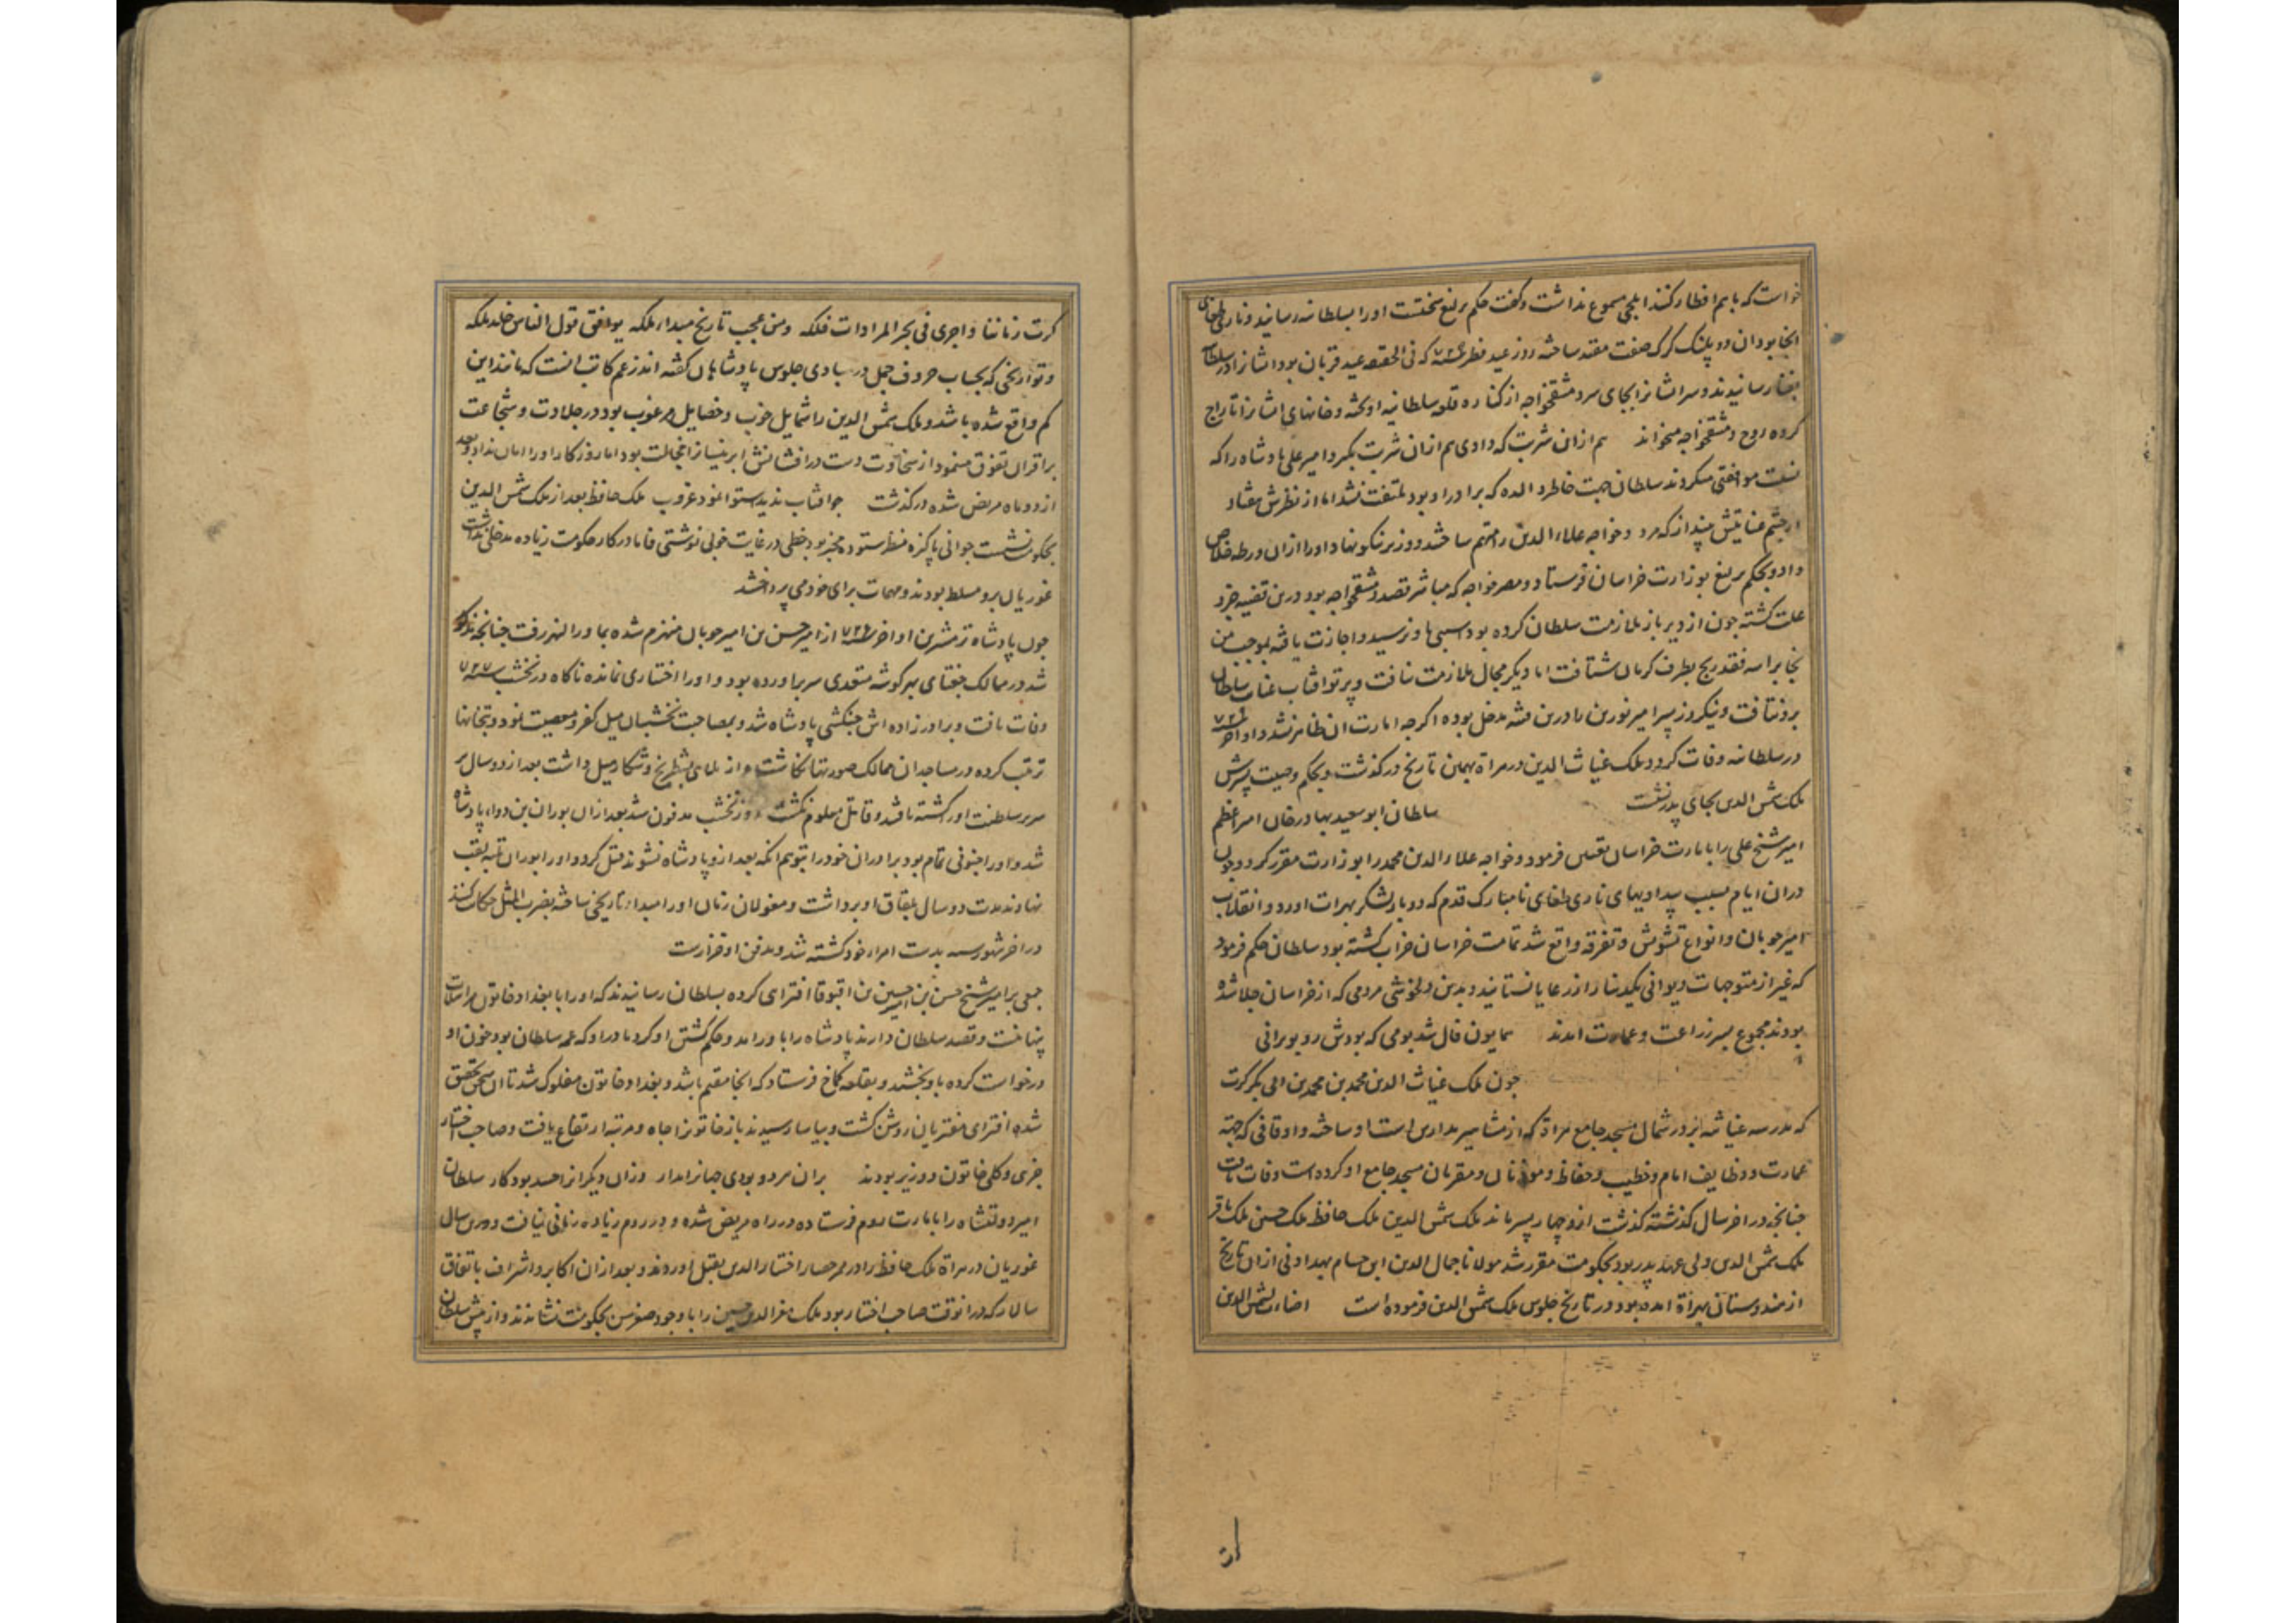 خواست که باهم افطار کنند ایلچی مسموع نداشت و گفت حکم یرلیغ نخشت اورا بسلطانیه رسانید و ناری طغای
انجا بود ان دو پلنک کرک صفت مقید ساخته روز عید فطر که فی الحقیقه عید قربان بود ایشانرا در سلطانیه
رسانیدند و سر ایشانرا بجای سر دمشقخواجه از کناره قلعه سلطانیه اویخته و خانهای ایشانرا تاراج
کرده روح دمشقخواجه میخواند هم ازان شربت که دادی هم ازان شربت بگیر و امیر علی پادشاه را که
نسبت موافقتی میکردند سلطان جهت خاطر والده که برادر او بود ملتفت نشد اما از نظرش بیفتاد
از چشم عنایتش بینداز که مرد و خواجه علاء الدین را متهم ساختند و وزیر نیکو نهاد اورا ازان ورطه خلاص
داد و بحکم یرلیغ بوزارت خراسان فرستاد و مصر خواجه که مباشر قصد دمشقخواجه بود درین قضیه جزو
علت کشته چون از دیر باز ملازمت سلطان کرده بود اسیبی باو نرسید و اجازت یافته بموجب من
نجا براسه فقد ربح بطرف کرمان شتافت اما دیکر مجال ملازمت نیافت و پرتو افتاب عنایت سلطان
برو نتافت و نیکروز پسر امیر نورین را درین فتنه مدخل بوده اکرچه امارت ان ظاهر نشد و اواخر
در سلطانیه وفات کرد و ملک غیاث الدین در هراة بهمین تاریخ در کذشت و بحکم وصیت پسرش
ملک شمس الدین بجای پدر نشست سلطان ابو سعید بهادر خان امیر اعظم
امیر شیخ علی را بامارت خراسان تعیین فرمود و خواجه علاء الدین محمد را بوزارت مقرر کرد و چون
دران ایام بسبب بیدادیهای ناری طغای نامبارک قدم که دو بار لشکر بهرات اورد و انقلاب
امیر چوبان و انواع تشویش و تفرقه واقع شد تمامت خراسان خراب کشته بود سلطان حکم فرمود
که غیر از متوجهات دیوانی یکدینار از رعایا نستانند و بدین دلخوشی مردمی که از خراسان جلا شده
بودند مجموع بسر زراعت و عمارت امدند همایون فال شد بومی که بودش رو بویرانی
چون ملک غیاث الدین محمد بن محمد بن ابی بکر کرت
که مدرسه غیاثیه بر در شمال مسجد جامع هراة که از مشاهیر مدارس است او ساخته و اوقافی که جهة
عمارت و وظایف امام و خطیب و حفاظ و موذنان و مقریان مسجد جامع او کرده است وفات یافت
چنانچه در اخر سال کذشته کذشت ازو چهار پسر ماند ملک شمس الدین ملک حافظ ملک حسین ملک باقر
ملک شمس الدین ولی عهد پدر بود بحکومت مقرر شد مولانا جمال الدین ابن حسام دران تاریخ
از هندوستان بهراة امده بود در تاریخ جلوس ملک شمس الدین فرموده است اضاءت بشمس الدین
از
کرت زماننا و اجری فی بحر المرادات فلکه ومن عجب تاریخ مبدا ملکه یوافق قول الناس خلد ملکه
و تواریخی که بحساب حروف جمل در مبادی جلوس پادشاهان کفته اند زعم کاتب انست که مانند این
کم واقع شده باشد و ملک شمس الدین را شمایل خوب و خصایل مرغوب بود در جلادت و شجاعت
بر اقران تفوق مینمود از سخاوت دست درافشانش ابر نیسانرا خجالت بود اما روزکار اورا امان نداد بعد
از دو ماه مریض شده درکذشت چو افتاب ندیدستوا نمود غروب ملک حافظ بعد از ملک شمس الدین
بحکومت نشست جوانی پاکیزه منظر ستوده مخبر بود خطی در غایت خوبی نوشتی فاما در کار حکومت زیاده مدخلی نداشت
غوریان برو مسلط بودند و مهمات برای خود می پرداختند
چون پادشاه ترمشرین اواخر از امیر حسن بن امیر چوبان منهزم شده بماورا النهر رفت چنانچه مذکور
شد در ممالک جغتای بهر کوشه متعدی سر براورده بود و اورا اختیاری نمانده ناکاه در نخشب ۷۲۷
وفات یافت و برادر زاده اش جنکشی پادشاه شد و بمصاحبت بخشیان میل کفر و معصیت نمود و بتخانها
ترتیب کرده در مساجد ان ممالک صورتها نکاشت و از ملاهی بشطرنج و شکار میل داشت بعد از دو سال بر
سریر سلطنت اورا کشته یافتند و قاتل معلوم نکشت و در نخشب مدفون شد بعد ازان بوران بن دوا پادشاه
شد و اورا جنونی تمام بود برادران خودرا بتوهم انکه بعد ازو پادشاه نشوند قتل کرد و اورا بوران تلبه لقب
نهادند مدت دو سال بلقاق او برداشت و مغولان زمان اورا مبداء تاریخی ساخته بضرب المثل حکایت کنند
در اخر شهور سنه بدست امراء خود کشته شد و مدفن او قزارست
جمعی بر امیر شیخ حسن بن امیر حسین بن اقبوقا افترای کرده بسلطان رسانیدند که اورا با بغداد خاتون مراسلات
پنهانست و قصد سلطان دارند پادشاه را باور امد و حکم کشتن او کرد مادر او که عمه سلطان بود خون او
درخواست کرده باو بخشید و بقلعه کماخ فرستاد که انجا مقیم باشد و بغداد خاتون مفلوک شد تا ان سخن تحقیق
شده افترای مفتریان روشن کشت و بیاسا رسیدند باز خاتونرا جاه و مرتبه ارتفاع یافت و صاحب اختیار
جزوی و کلی خاتون و وزیر بودند بران مرد و بودی جهانرا مدار وزان دیکرانرا حسد بود کار سلطان
امیر دولتشاه را بامارت روم فرستاده در راه مریض شده و در روم زیاده زمانی نیافت و درین سال
غوریان در هراة ملک حافظ را در ممر حصار اختیار الدین بقتل اوردند و بعد ازان اکابر و اشراف باتفاق
سالار که درانوقت صاحب اختیار بود ملک معز الدین حسین را با وجود صغر سن بحکومت نشاندند و از پیش سلطان